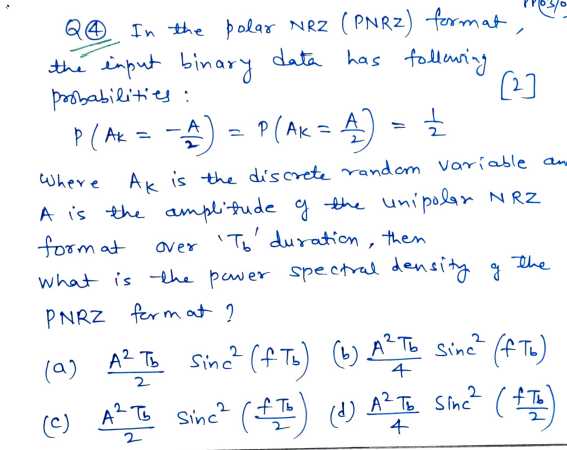 Q④ In the polar NRZ (PNRZ) format,
the input binary data has following
probabilities : [2]
P(AK = -A/2) = P(AK = A/2) = 1/2
where AK is the discrete random variable an
A is the amplitude of the unipolar NRZ
format over 'Tb' duration, then
what is the power spectral density of the
PNRZ format ?
(a) A² Tb/2 Sinc² (f Tb) (b) A² Tb/4 Sinc² (f Tb)
(c) A² Tb/2 Sinc² (f Tb/2) (d) A² Tb/4 Sinc² (f Tb/2)